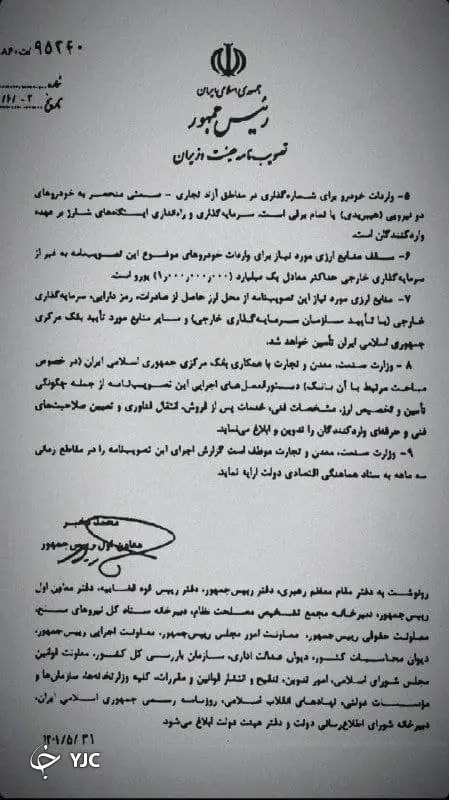 ۹۵۲۴۰/ت۸۶۰
شماره
تاریخ
جمهوری اسلامی ایران
رئیس جمهور
تصویب نامه هیئت وزیران
۵- واردات خودرو برای شماره‌گذاری در مناطق آزاد تجاری - صنعتی منحصر به خودروهای
دو نیرویی (هیبریدی) یا تمام برقی است. سرمایه‌گذاری و راه‌اندازی ایستگاه‌های شارژ بر عهده
واردکنندگان است.
۶- سقف منابع ارزی مورد نیاز برای واردات خودروهای موضوع این تصویب‌نامه به غیر از
سرمایه‌گذاری خارجی حداکثر معادل یک میلیارد (۱٫۰۰۰٫۰۰۰٫۰۰۰) یورو است.
۷- منابع ارزی مورد نیاز این تصویب‌نامه از محل ارز حاصل از صادرات، رمز دارایی، سرمایه‌گذاری
خارجی (با تأیید سازمان سرمایه‌گذاری خارجی) و سایر منابع مورد تأیید بانک مرکزی
جمهوری اسلامی ایران تأمین خواهد شد.
۸- وزارت صنعت، معدن و تجارت با همکاری بانک مرکزی جمهوری اسلامی ایران (در خصوص
مباحث مرتبط با آن بانک) دستورالعمل‌های اجرایی این تصویب‌نامه از جمله چگونگی
تأمین و تخصیص ارز، مشخصات فنی، خدمات پس از فروش، انتقال فناوری و تعیین صلاحیت‌های
فنی و حرفه‌ای واردکنندگان را تدوین و ابلاغ می‌نماید.
۹- وزارت صنعت، معدن و تجارت موظف است گزارش اجرای این تصویب‌نامه را در مقاطع زمانی
سه ماهه به ستاد هماهنگی اقتصادی دولت ارایه نماید.
محمد مخبر
معاون اول رییس جمهور
رونوشت به دفتر مقام معظم رهبری، دفتر رییس‌جمهور، دفتر رییس قوه قضاییه، دفتر معاون اول
رییس‌جمهور، دبیرخانه مجمع تشخیص مصلحت نظام، دبیرخانه ستاد کل نیروهای مسلح،
معاونت حقوقی رییس‌جمهور، معاونت امور مجلس رییس‌جمهور، معاونت اجرایی رییس‌جمهور،
دیوان محاسبات کشور، دیوان عدالت اداری، سازمان بازرسی کل کشور، معاونت قوانین
مجلس شورای اسلامی، امور تدوین، تنقیح و انتشار قوانین و مقررات، کلیه وزارتخانه‌ها، سازمان‌ها و
مؤسسات دولتی، نهادهای انقلاب اسلامی، روزنامه رسمی جمهوری اسلامی ایران،
دبیرخانه شورای اطلاع‌رسانی دولت و دفتر هیئت دولت ابلاغ می‌شود.
۱۴۰۱/۵/۳۱
YJC